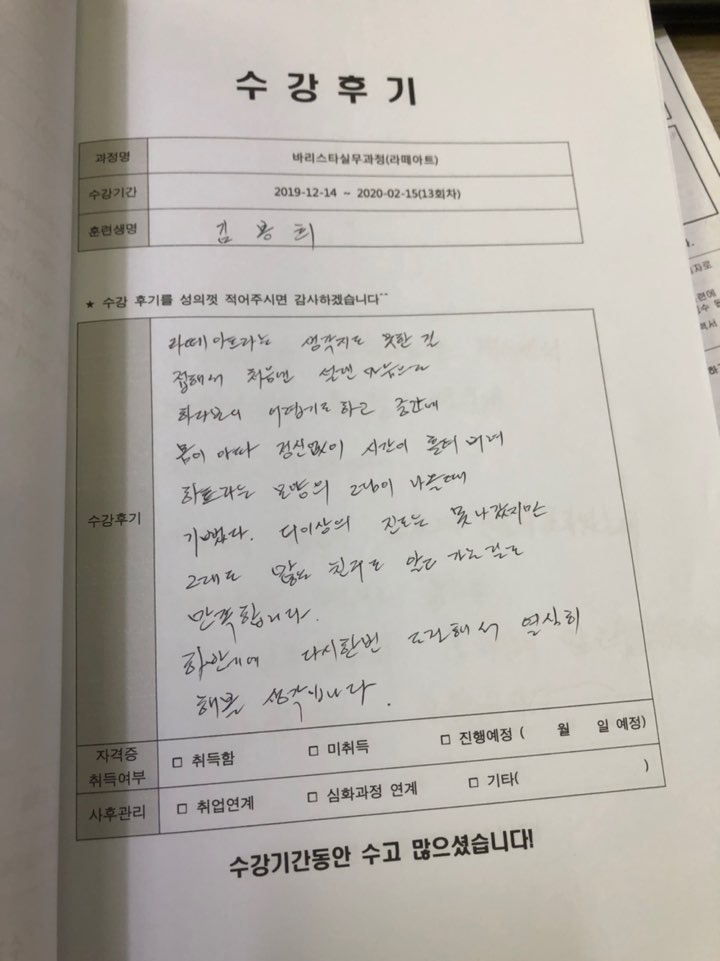 수강후기
과정명 바리스타실무과정(라떼아트)
수강기간 2019-12-14 ~ 2020-02-15(13회차)
훈련생명 김용희
★ 수강 후기를 성의껏 적어주시면 감사하겠습니다^^
수강후기
라떼아트라는 생각지도 못한 길
접해서 처음엔 설렌 마음으로
어렵기도 하고 중간에
몸이 아파 정신없이 시간이 흘러
하트라는 모양의 그림이 나올때
기뻤다. 더이상의 진도는 못나갔지만
그래도 많은 친구도 알고 가는걸로
만족합니다.
다시한번 도전해서 열심히
해볼 생각입니다.
자격증 취득여부 □ 취득함 □ 미취득 □ 진행예정 ( 월 일 예정)
사후관리 □ 취업연계 □ 심화과정 연계 □ 기타( )
수강기간동안 수고 많으셨습니다!